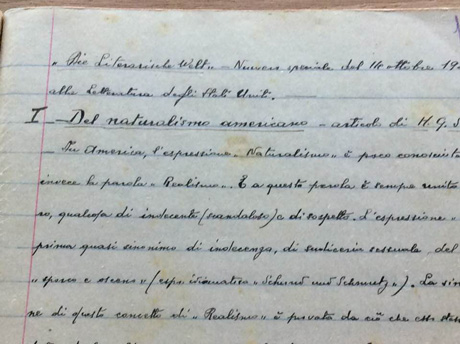 „ Die Literarische Welt" – Numero speciale del 14 ottobre 19
alla Letteratura degli Stati Uniti.
I Del naturalismo americano – articolo di M. G. S
In America, l'espressione „ Naturalismo" è poco conosciuta
invece la parola „ Realismo". E a questa parola è sempre unito
ro, qualcosa di indecente (scandaloso) e di sospetto. L'espressione „
prima quasi sinonimo di indecenza, di sudiceria sessuale, del
„ sporco e osceno" (espr. idiomatica „ Schund und Schmutz"). La
ne di questo concetto di „ Realismo" è provata da ciò che esso